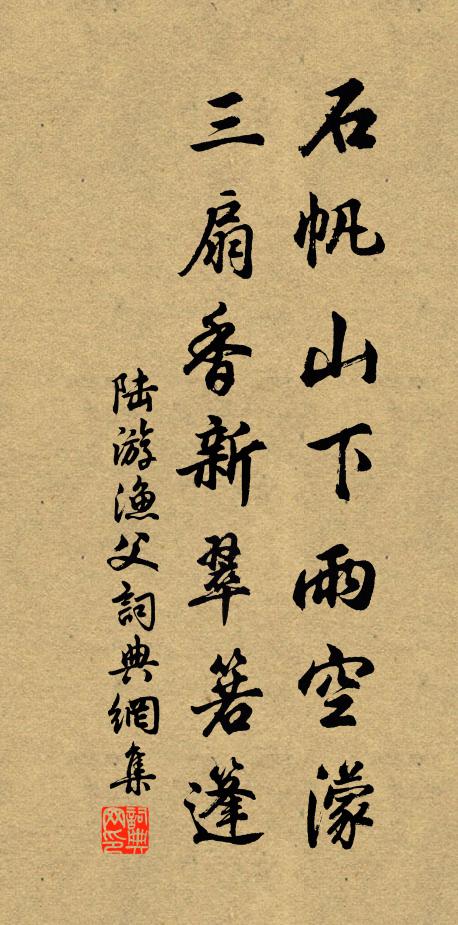 石帆山下雨空濛
三扇香新翠箬蓬
陆游漁父詞典網集
詞典网印